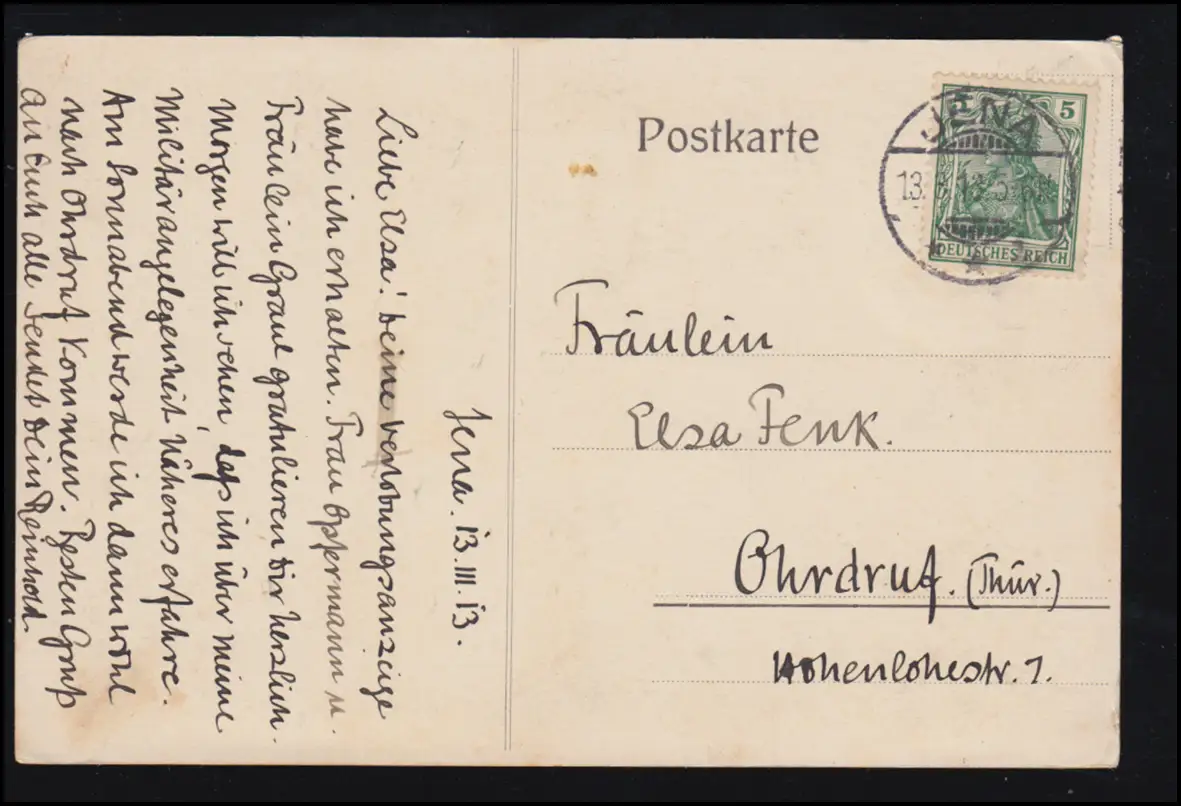 Postkarte
JENA
13.3.13.5-6N
5
DEUTSCHES REICH
Fräulein
Elsa Fenk.
Ohrdruf. (Thür.)
Hohenlohestr. 1.
Jena. 13.III.13.
Liebe Elsa! Deine Verlobungsanzeige
habe ich erhalten. Frau Oppermann u.
Fräulein Graul gratulieren Dir herzlich.
Morgen will ich sehen, daß ich über meine
Militärangelegenheit Näheres erfahre.
Am Sonnabend werde ich dann wohl
nach Ohrdruf kommen. Besten Gruß
an Euch alle sendet Dein Reinhold.